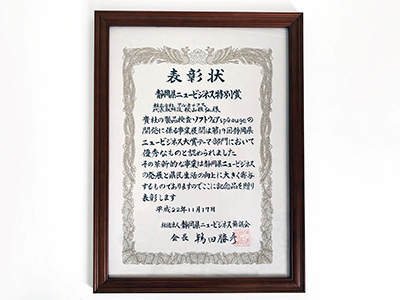 表彰状
静岡県ニュービジネス特別賞
代表取締役 秋山雅弘様
貴社の製品検査ソフトウェアspGaugeの
開発に係る事業展開は第19回静岡県
ニュービジネス大賞テーマ部門において
優秀なものと認められました
その革新的な事業は静岡県ニュービジネス
の発展と県民生活の向上に大きく寄与
するものでありますのでここに記念品を贈り
表彰します
平成22年11月17日
社団法人静岡県ニュービジネス協議会
会長 鞠田勝彦